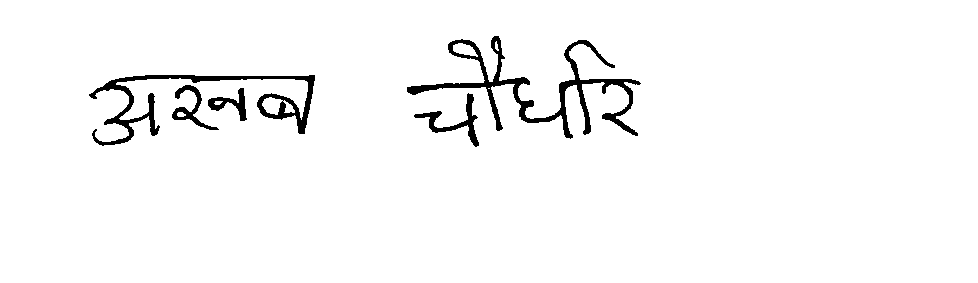 अरनब चौर्धार